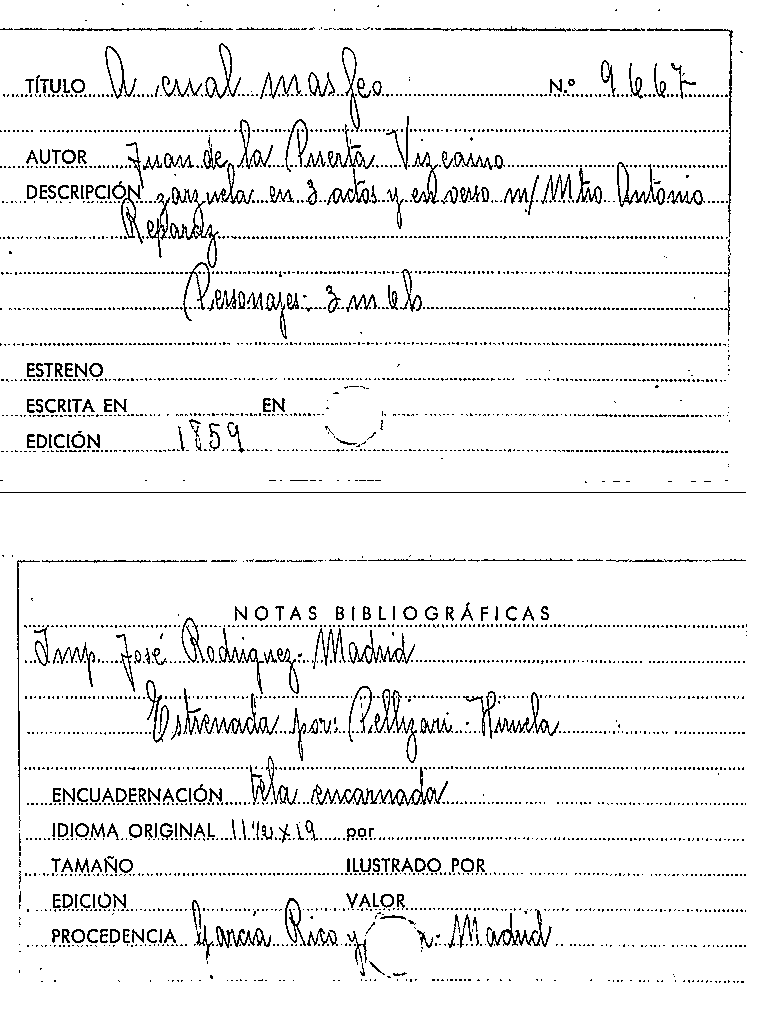 TÍTULO A cual mas feo N.º 9667
AUTOR Juan de la Puerta Vizcaino
DESCRIPCIÓN zarzuela en 3 actos y en verso m/ Mtro Antonio
Reparaz
Personajes: 3 m 6 h
ESTRENO
ESCRITA EN EN
EDICIÓN 1859
NOTAS BIBLIOGRÁFICAS
Imp. José Rodriguez - Madrid
Estrenada por: Pellizari - Hiruela
ENCUADERNACIÓN tela encarnada
IDIOMA ORIGINAL 11½ x 19 por
TAMAÑO ILUSTRADO POR
EDICIÓN VALOR
PROCEDENCIA García Rico y Madrid